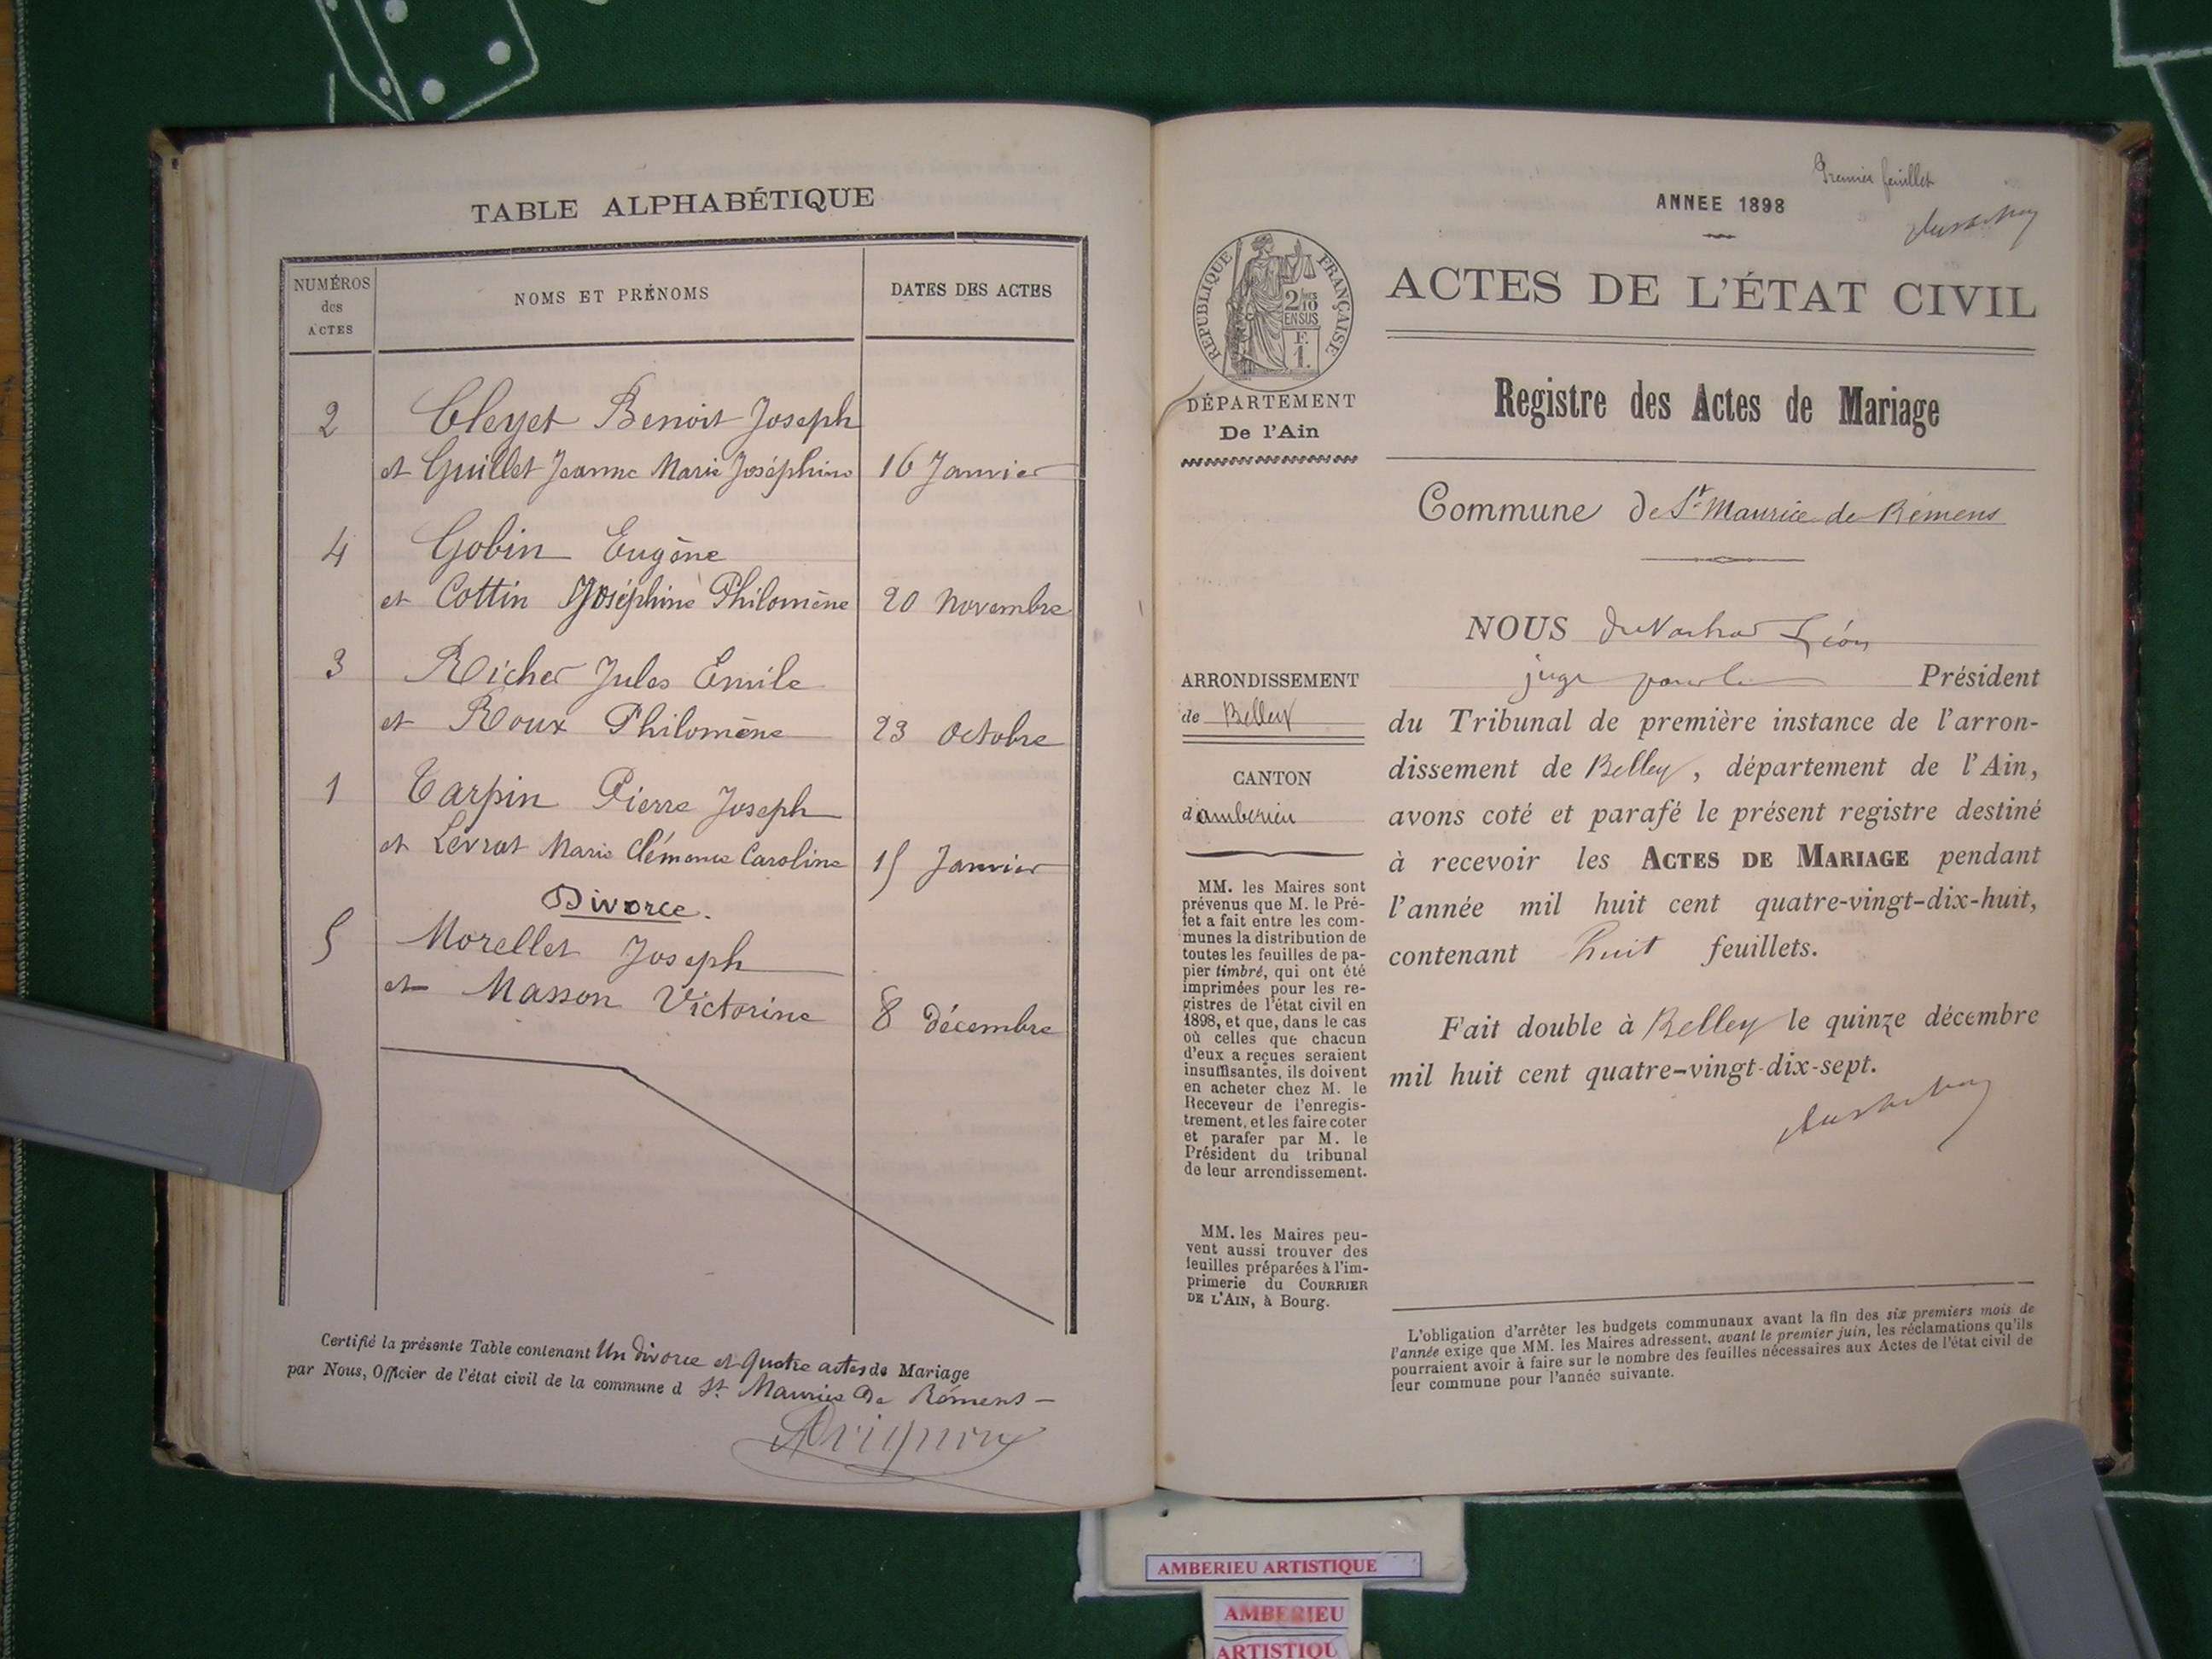 TABLE ALPHABÉTIQUE
NUMÉROS
des
ACTES
NOMS ET PRÉNOMS
DATES DES ACTES
2 Cleyet Benoit Joseph
et Guillet Jeanne Marie Joséphine 16 Janvier
4 Gobin Eugène
et Cottin Joséphine Philomène 20 Novembre
3 Richer Jules Emile
et Roux Philomène 23 Octobre
1 Tarpin Pierre Joseph
et Levrat Marie Clémence Caroline 15 Janvier
Divorce.
5 Morellet Joseph
et Masson Victorine 8 Décembre
Certifié la présente Table contenant Un divorce et quatre actes de Mariage
par Nous, Officier de l'état civil de la commune d St Maurice De Rémens
Premier feuillet
ANNEE 1898
RÉPUBLIQUE FRANÇAISE
2/10
EN SUS
F.
1.
ACTES DE L'ÉTAT CIVIL
Registre des Actes de Mariage
DÉPARTEMENT
De l'Ain
Commune de St Maurice de Rémens
ARRONDISSEMENT
de Belley
CANTON
d'amberieu
MM. les Maires sont
prévenus que M. le Pré-
fet a fait entre les com-
munes la distribution de
toutes les feuilles de pa-
pier timbré, qui ont été
imprimées pour les re-
gistres de l'état civil en
1898, et que, dans le cas
où celles que chacun
d'eux a reçues seraient
insuffisantes, ils doivent
en acheter chez M. le
Receveur de l'enregis-
trement, et les faire coter
et parafer par M. le
Président du tribunal
de leur arrondissement.
MM. les Maires peu-
vent aussi trouver des
feuilles préparées à l'im-
primerie du COURRIER
DE L'AIN, à Bourg.
NOUS Léon
juge pour le Président
du Tribunal de première instance de l'arron-
dissement de Belley, département de l'Ain,
avons coté et parafé le présent registre destiné
à recevoir les ACTES DE MARIAGE pendant
l'année mil huit cent quatre-vingt-dix-huit,
contenant huit feuillets.
Fait double à Belley le quinze décembre
mil huit cent quatre-vingt-dix-sept.
L'obligation d'arrêter les budgets communaux avant la fin des six premiers mois de
l'année exige que MM. les Maires adressent, avant le premier juin, les réclamations qu'ils
pourraient avoir à faire sur le nombre des feuilles nécessaires aux Actes de l'état civil de
leur commune pour l'année suivante.
AMBERIEU ARTISTIQUE
AMBERIEU
ARTISTIQU